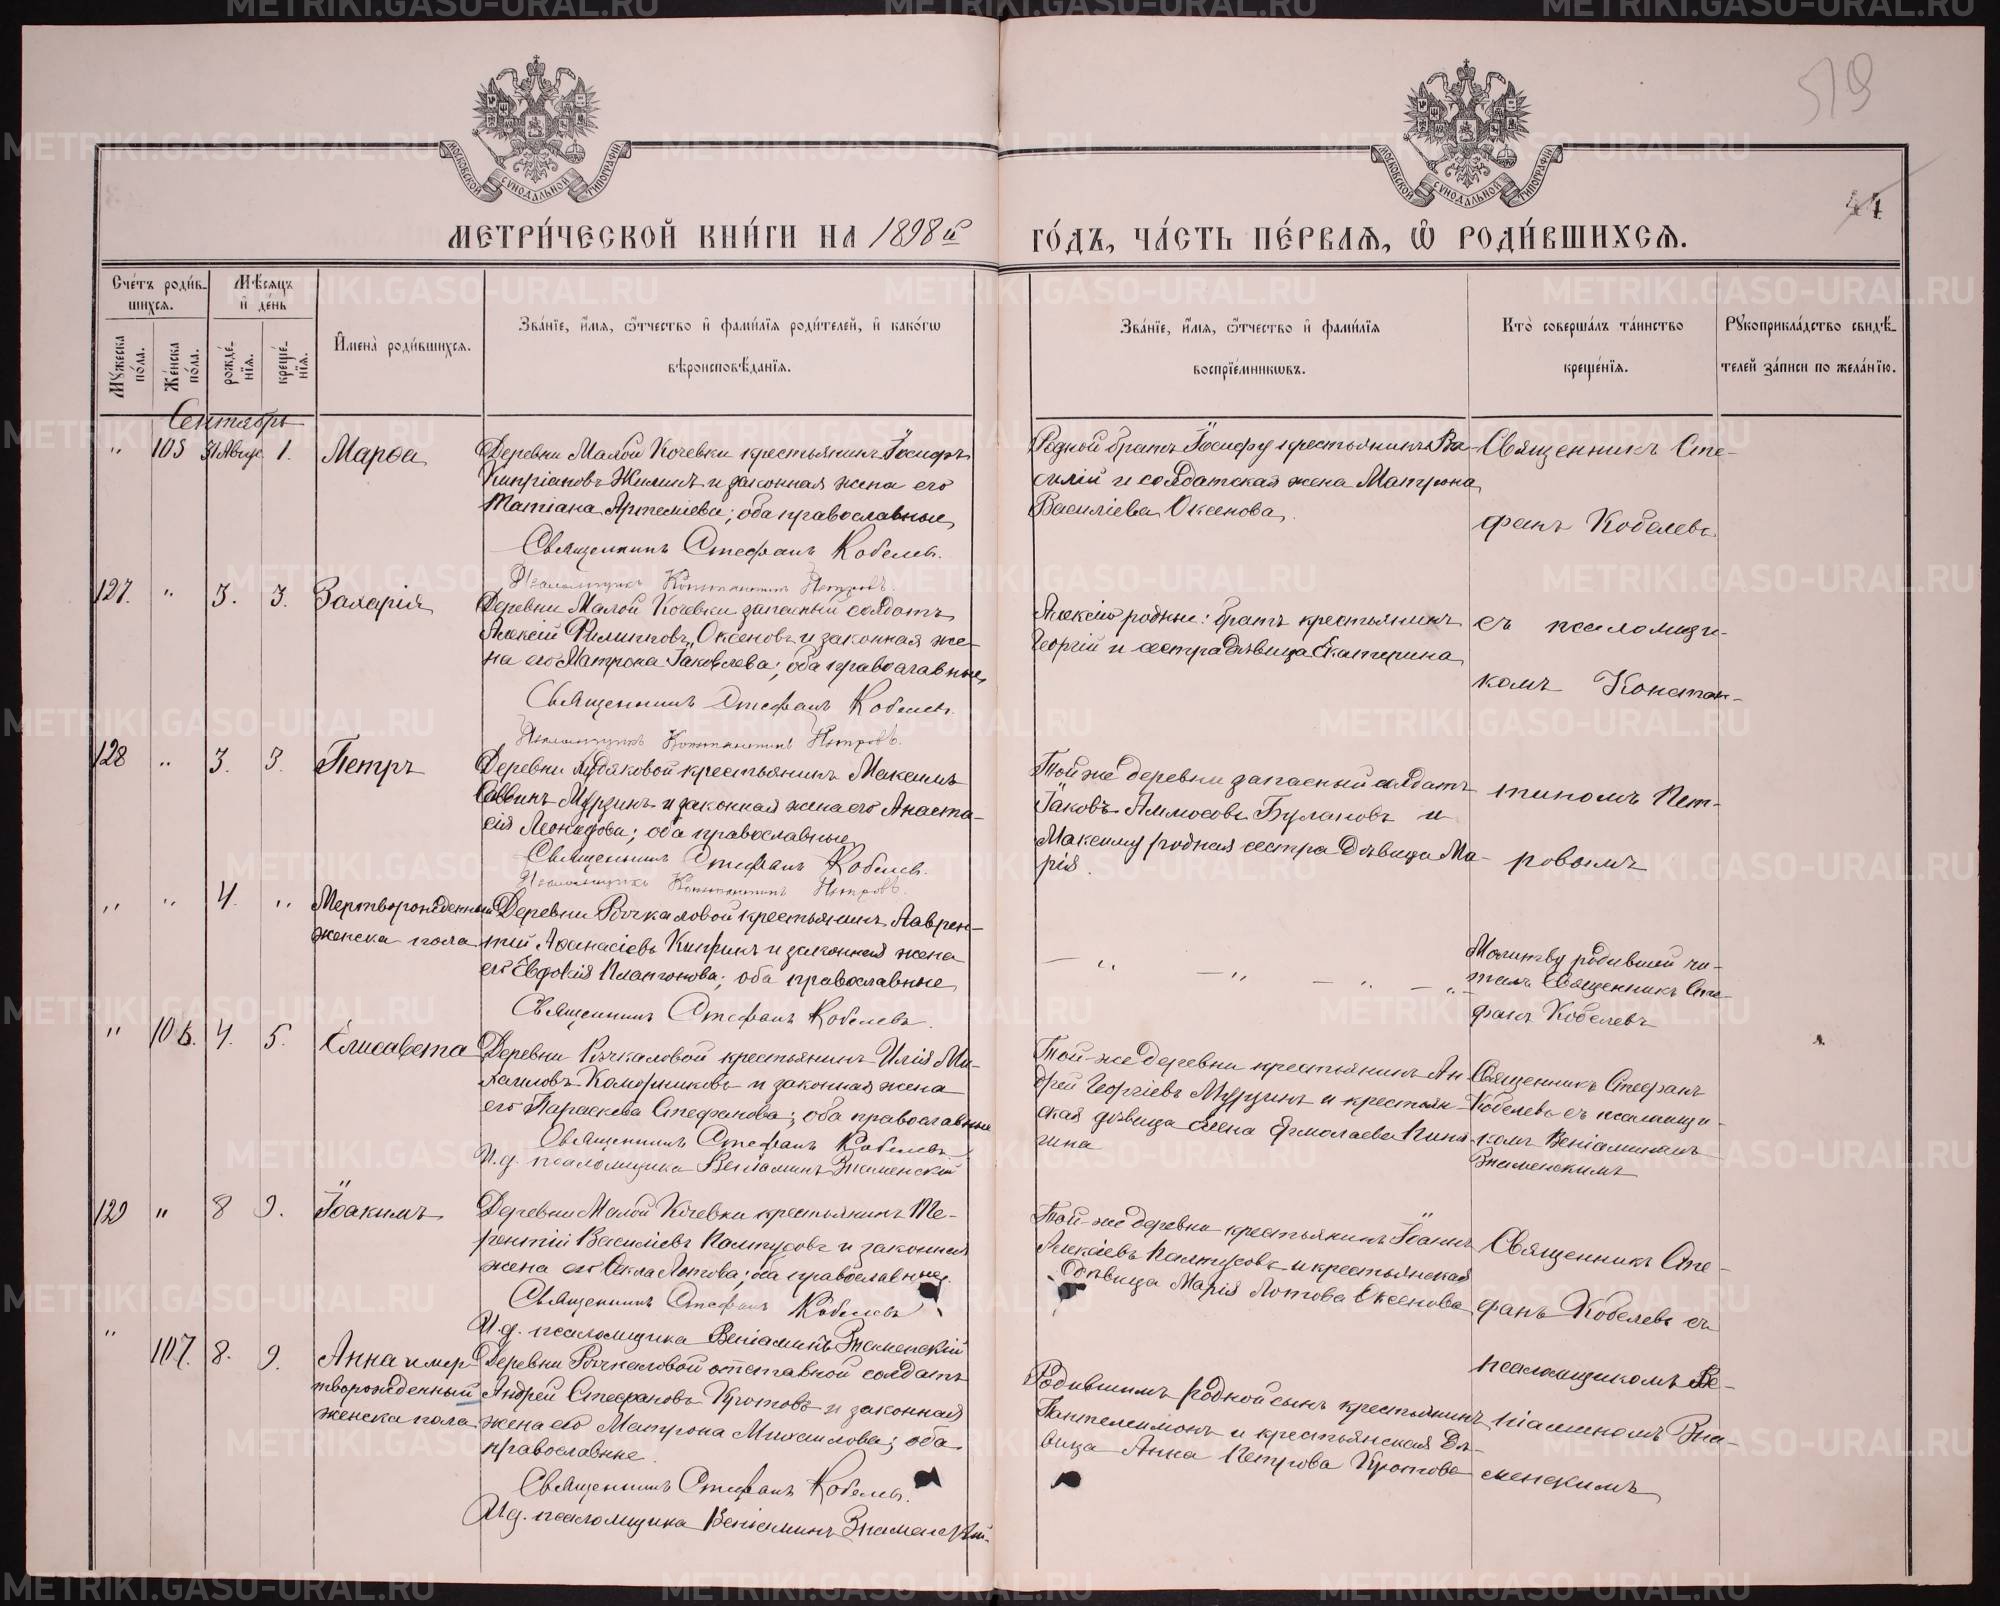 519
44
МОСКОВСКОЙ СѴНОДАЛЬНОЙ ТИПОГРАФІИ
МОСКОВСКОЙ СѴНОДАЛЬНОЙ ТИПОГРАФІИ
МЕТРИ́ЧЕСКОЙ КНИ́ГИ НА 1898й ГО́ДЪ, ЧА́СТЬ ПЕ́РВАѦ, Ѡ҆ РОДИ́ВШИХСѦ.
Сче́тъ роди́в-
шихсѧ.
Мѣ́сяцъ
и҆ де́нь
Мꙋжеска по́ла.
Же́нска по́ла.
рожде́нїѧ.
креще́нїѧ.
И҆мена̀ роди́вшихсѧ.
Зва́нїе, и҆́мѧ, ѻ҆́тчество и҆ фами́лїѧ роди́телей, и҆ како́гѡ
вѣроисповѣ́данїѧ.
Зва́нїе, и҆́мѧ, ѻ҆́тчество и҆ фами́лїѧ
воспрїе́мникѡвъ.
Кто̀ соверша́лъ та́инство
креще́нїѧ.
Рꙋкоприкла́дство свидѣ́-
телей за́писи по жела́нїю.
Сентябрь
" 105 31 Авгус. 1. Марѳа
Деревни Малой Кочевки крестьянинъ Іосифъ
Кипріановъ Жилинъ и законная жена его
Татіана Артеміева; оба православные
Священникъ Стефанъ Кобелевъ.
Псаломщикъ Константинъ Петровъ.
Родной братъ Іосифу крестьянинъ Ва-
силій и солдатская жена Матрона
Василіева Оксенова.
Священникъ Сте-
фанъ Кобелевъ
127. " 3. 3. Захарія
Деревни Малой Кочевки запасный солдатъ
Алексій Филипповъ Оксеновъ и законная же-
на его Матрона Іаковлева; оба православные
Священникъ Стефанъ Кобелевъ.
Псаломщикъ Константинъ Петровъ.
Алексію родные: братъ крестьянинъ
Георгій и сестра дѣвица Екатерина
съ псаломщи-
комъ Констан-
128 " 3. 3. Петръ
Деревни крестьянинъ Максимъ
Саввинъ Мурзинъ и законная жена его Анаста-
сія Леонидова; оба православные
Священникъ Стефанъ Кобелевъ.
Псаломщикъ Константинъ Петровъ.
Той же деревни запасный солдатъ
Іаковъ Аммосовъ Булановъ и
Максиму родная сестра дѣвица Ма-
рія.
тиномъ Пет-
ровымъ
" " 4. " Мертворожденный
женска пола
Деревни Рычкаловой крестьянинъ Лаврен-
тий Аѳанасіевъ и законная жена
его Евдокія Платонова; оба православные
Священникъ Стефанъ Кобелевъ.
— " — " — " — "
Молитву родившей чи-
талъ Священникъ Сте-
фанъ Кобелевъ
" 106. 4. 5. Елисавета
Деревни Рычкаловой крестьянинъ Илія Ми-
хаиловъ Каморниковъ и законная жена
его Параскева Стефанова; оба православные
Священникъ Стефанъ Кобелевъ.
И.д. псаломщика Веніаминъ Знаменский
Той-же деревни крестьянинъ Ан-
дрей Георгіевъ Мурзинъ и крестьян-
ская дѣвица Елена Ермолаева
Священникъ Стефанъ
Кобелевъ съ псаломщи-
комъ Веніаминомъ
Знаменскимъ
129 " 8 9. Іоакимъ
Деревни Малой Кочевки крестьянинъ Те-
рентій Василіевъ Палтусовъ и законная
жена его Ѳекла Лотова; оба православные.
Священникъ Стефанъ Кобелевъ
И.д. псаломщика Веніаминъ Знаменскій
Той-же деревни крестьянинъ Іоаннъ
Алексіевъ Палтусовъ и крестьянская
дѣвица Марія Лотова Оксенова
Священникъ Сте-
фанъ Кобелевъ съ
" 107. 8. 9. Анна и мер-
творожденный
женска пола
Деревни Рычкаловой отставной солдатъ
Андрей Стефановъ Кротовъ и законная
жена его Матрона Михаилова; оба
православные.
Священникъ Стефанъ Кобелевъ.
И.д. псаломщика Веніаминъ Знаменскій.
Родившимъ родной сынъ крестьянинъ
Пантелеимонъ и крестьянская дѣ-
вица Анна Петрова Кротова
псаломщикомъ Ве-
ніаминомъ Зна-
менскимъ
METRIKI.GASO-URAL.RU